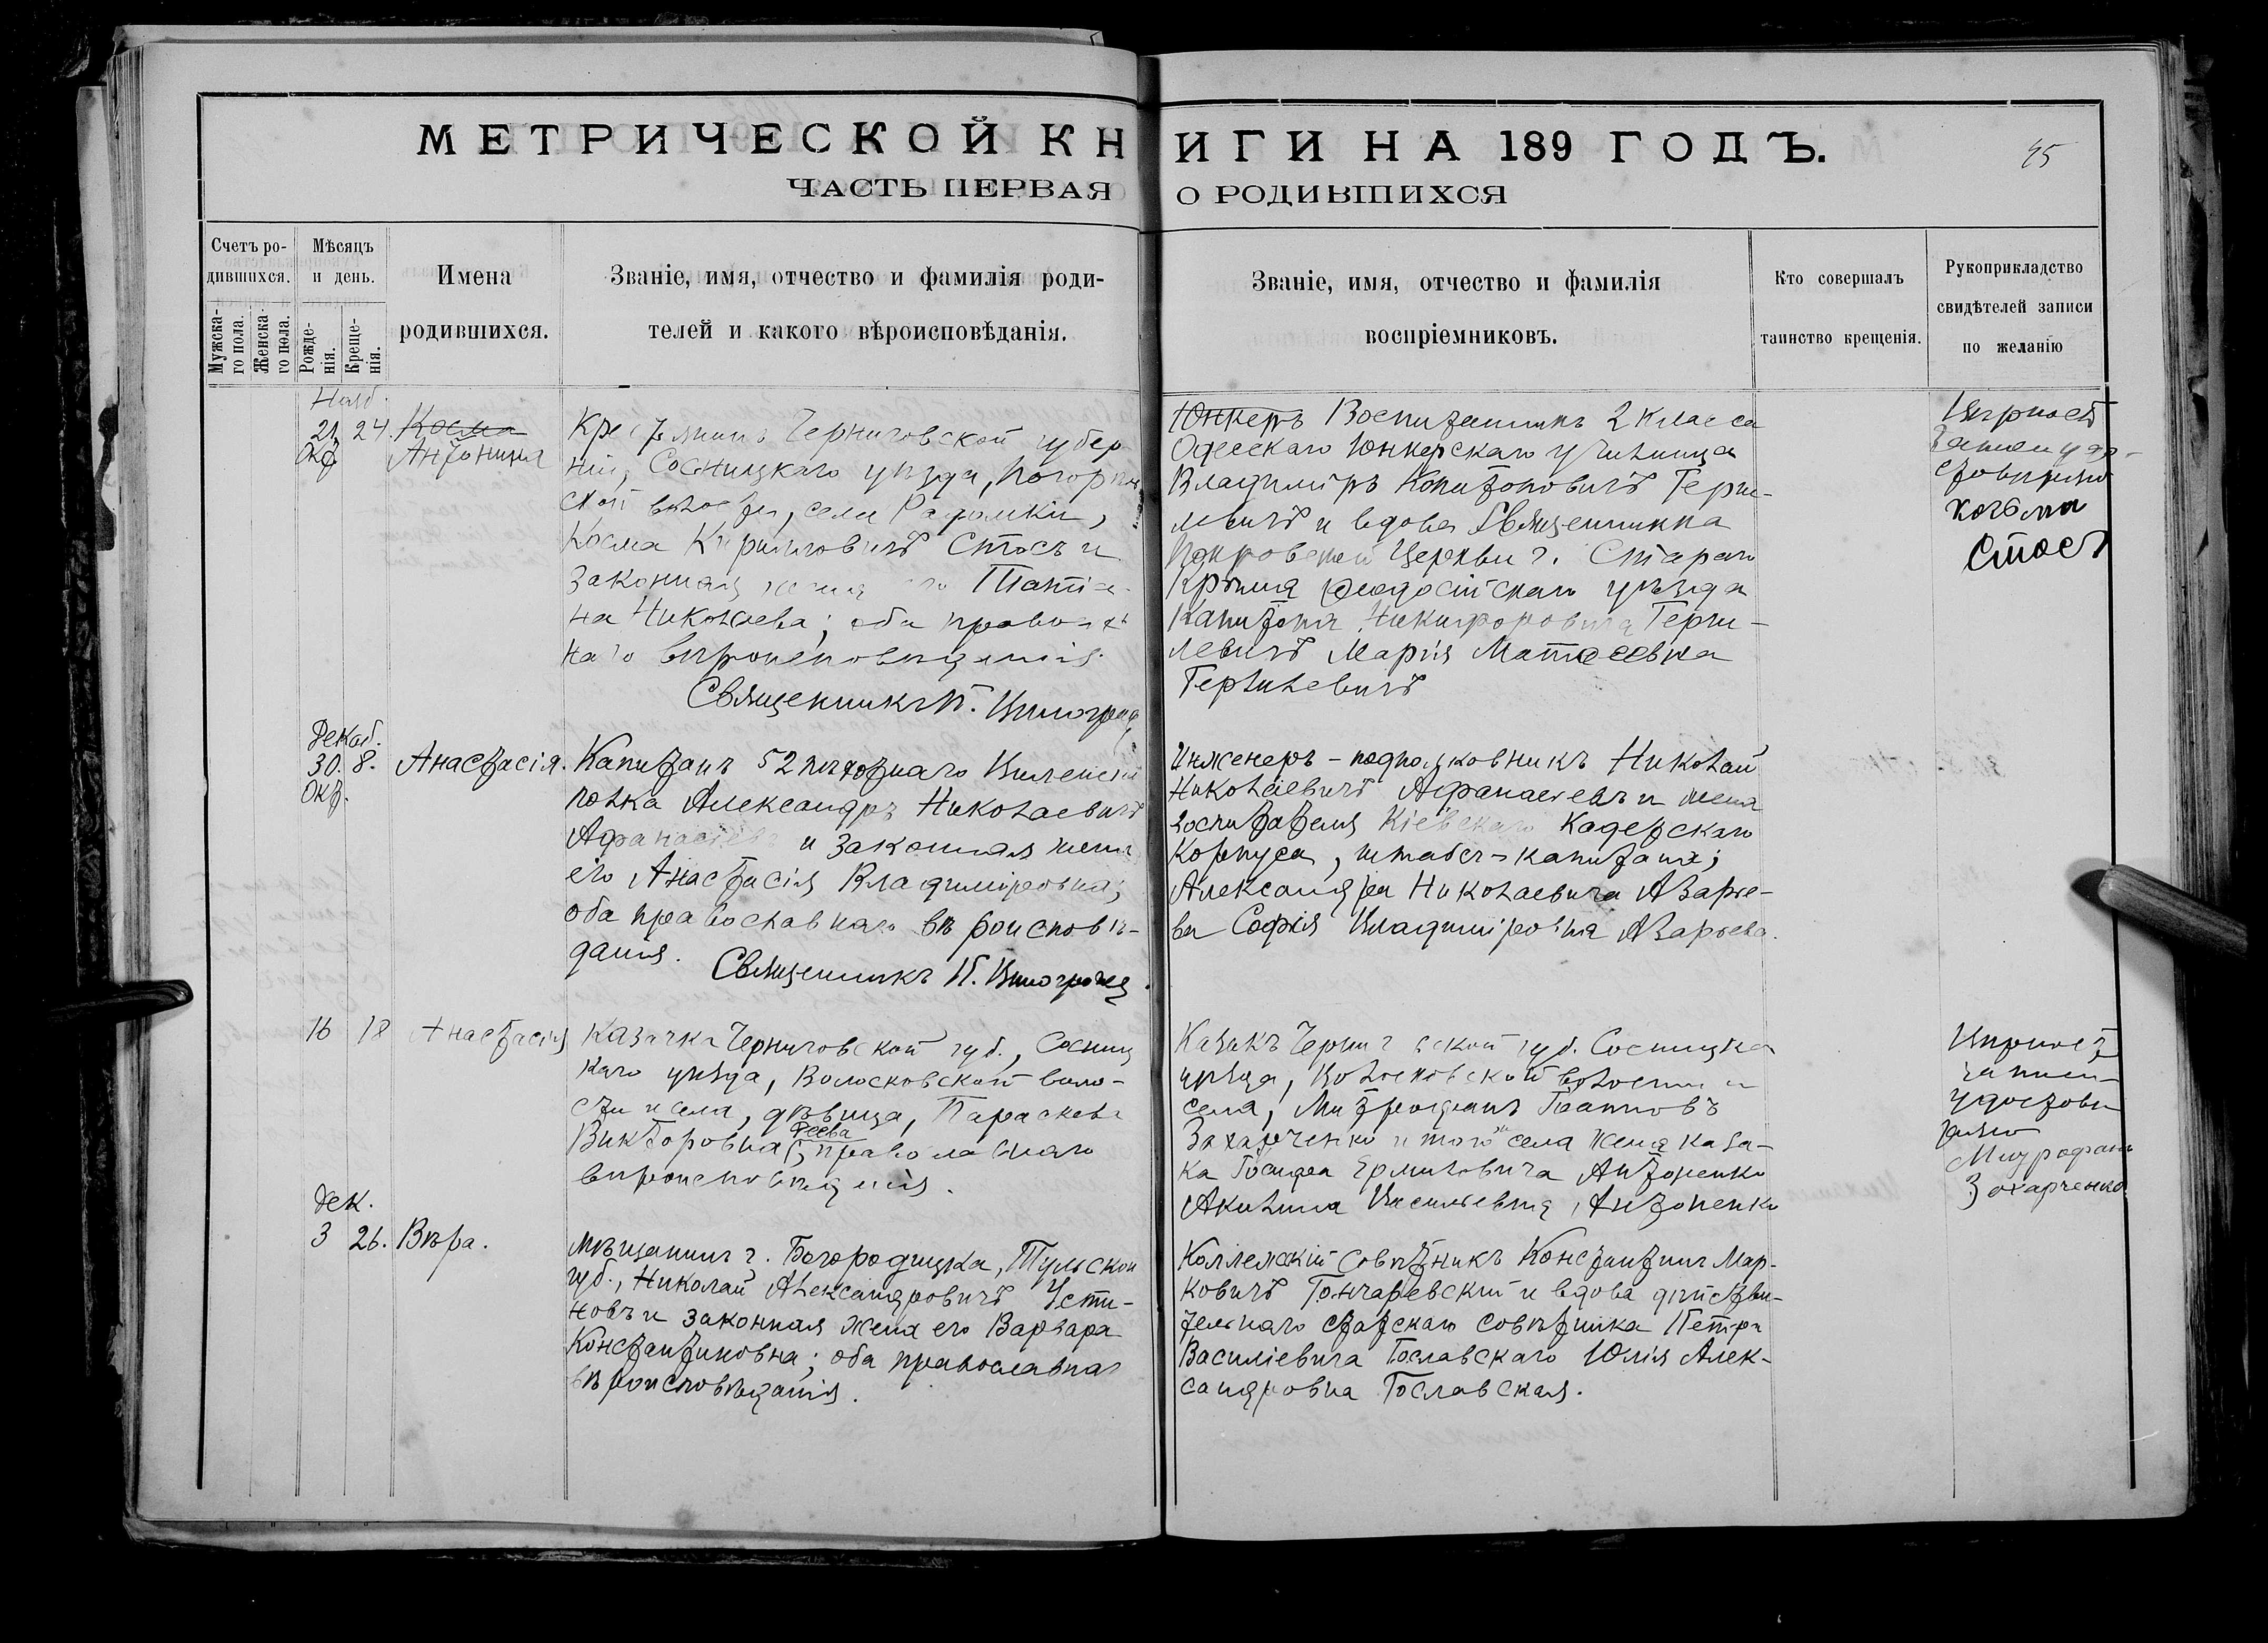 МЕТРИЧЕСКОЙ КНИГИ НА 189 ГОДЪ.
45
ЧАСТЬ ПЕРВАЯ О РОДИВШИХСЯ
Счетъ ро-
дившихся.
Мужска-
го пола.
Женска-
го пола.
Мѣсяцъ
и день.
Рожде-
нія.
Креще-
нія.
Имена
родившихся.
Званіе, имя, отчество и фамилія роди-
телей и какого вѣроисповѣданія.
Званіе, имя, отчество и фамилія
воспріемниковъ.
Кто совершалъ
таинство крещенія.
Рукоприкладство
свидѣтелей записи
по желанію
21 24. Косма
Окт. Антонина
Крестьянинъ Черниговской губер-
ніи, Сосницкаго уѣзда,
волости, села
Косма Кирилловичъ Стосъ и
законная жена его Татіа-
на Николаева; оба православ-
наго вѣроисповѣданія.
Священникъ П. Виноград
Юнкеръ Воспитанникъ 2 класса
Одесскаго Юнкерскаго училища
Владиміръ Капитоновичъ Терли-
левичъ и вдова Священника
Покровской Церкви г. Стараго
Крыма Ѳеодосійскаго уѣзда
Капитона Никифоровича
левичъ Марія Матѳеевна
Вѣрность
записи удо-
стовѣряю
Косьма
Стосъ
Декаб.
30. 8. Анастасія.
Окт.
Капитанъ 52 пѣхотнаго Виленскаго
полка Александръ Николаевичъ
Афанасьевъ и законная жена
его Анастасія Владиміровна;
оба православнаго вѣроисповѣ-
данія.
Священникъ П. Виноградов
Инженеръ-подполковникъ Николай
Николаевичъ Афанасьевъ и жена
воспитателя Кіевскаго Кадетскаго
Корпуса, штабсъ-капитана;
Александра Николаевича Азарье-
ва Софія Владиміровна Азарьева.
16 18 Анастасія
Казачка Черниговской губ., Сосниц
каго уѣзда, Волосковской воло-
сти и села, дѣвица, Параскева
Викторовна Деева, православнаго
вѣроисповѣданія.
Казакъ Черниговской губ. Сосницка
уѣзда, Волосковской волости и
села, Митрофанъ Іоанновъ
Захарченко и того села жена каза-
ка Іосифа Ермиловича Антоненко
Акилина Васильевна Антоненко
Вѣрность
записи
удостовѣ
ряю
Митрофанъ
Захарченко
Дек.
3 26. Вѣра.
Мѣщанинъ г. Богородицка, Тульской
губ., Николай Александровичъ Усти-
новъ и законная жена его Варвара
Константиновна; оба православнаго
вѣроисповѣданія.
Коллежскій совѣтникъ Константинъ Мар-
ковичъ Гончаревскій и вдова дѣйстви-
тельнаго статскаго совѣтника Петра
Василіевича Гославскаго Юлія Алек-
сандровна Гославская.